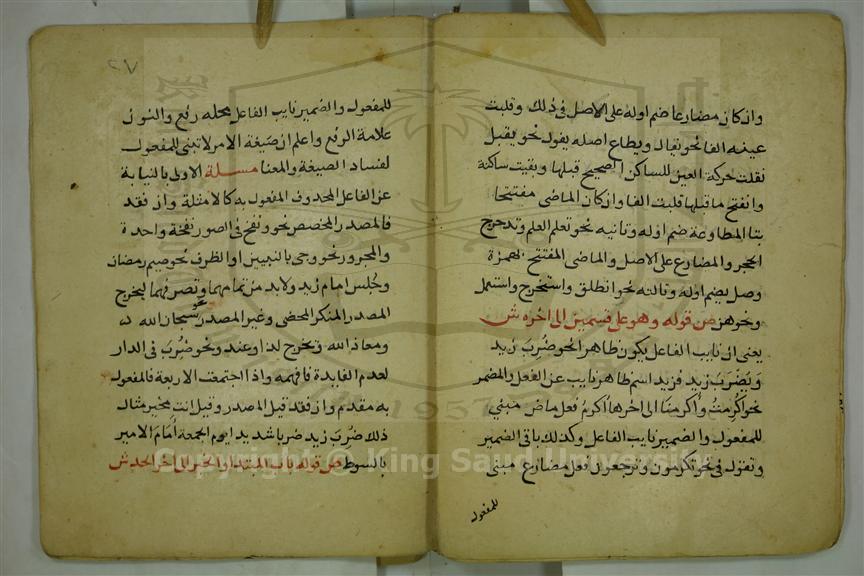 وان كان مضارعا ضم اوله على الاصل فى ذلك وقلبت
عينه الفا نحو يقال ويطاع اصله يقول نحو يقبل
نقلت حركة العين للساكن الصحيح قبلها وبقيت ساكنة
وانفتح ما قبلها قلبت الفا وان كان الماضى مفتتحا
بتا المطاوعة ضم اوله وثانيه نحو تعلم العلم وتدحرج
الحجر والمضارع على الاصل والماضى المفتتح بهمزة
وصل يضم اوله وثالثه نحو انطلق واستخرج واستعمل
ونحوهن ص قوله وهو على قسمين الى اخره ش
يعنى ان نايب الفاعل يكون ظاهرا نحو ضُرِبَ زيد
ويُضرَب زيد فزيد اسم ظاهر نايب عن الفعل والمضمر
نحو اكرمتُ واكرمنا الى اخرها اكرم فعل ماض مبنى
للمفعول والضمير نايب الفاعل وكذلك باقى الضمير
وتقول فى نحو تكرمون وترجعون فعل مضارع مبنى
للمفعول
٢٧
للمفعول والضمير نايب الفاعل محله رفع والنون
علامة الرفع واعلم ان صيغة الامر لا تبنى للمفعول
لفساد الصيغة والمعنا مسلة الاولى بالنيابة
عن الفاعل المحذوف المفعول به كالامثلة وان فقد
فالمصدر المخصص نحو ونفخ فى الصور نفخة واحدة
والمجرور نحو وجى بالنبيين او الظرف نحو صيم رمضان
وجُلس امام زيد ولابد من تمامهما وتصرفهما ليخرج
المصدر المنكر المحضى وغير المصدر نحو سبحان الله
ومعاذ الله وتخرج لدا وعند ونحو ضُرِبَ فى الدار
لعدم الفايدة فافهمه واذا اجتمعت الاربعة فالمفعول
به مقدم وان فقد قيل المصدر وقيل انت مخير مثال
ذلك ضُرِبَ زيد ضربا شديدا يوم الجمعة امام الامير
بالسوط ص قوله باب المبتدا والخبر الى اخر الحد ش
Copyright © King Saud University
1957